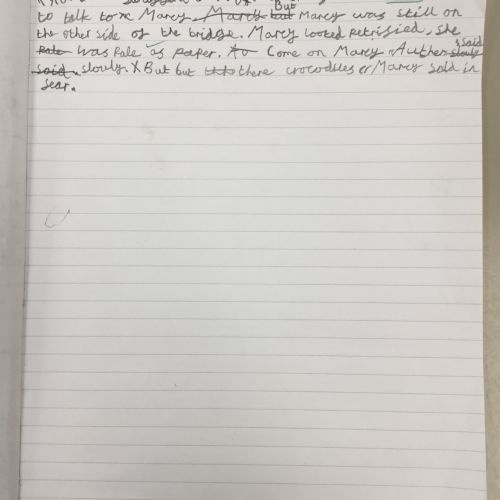 to talk to Marcy March but But Marcy was still on
the other side of the bridge. Marcy looted petrisied. She
Pale was Pale as paper. to Come on Marcy "Authen said slowly
said. slowly X But but there crocodiles er Marcy sald in
sear.